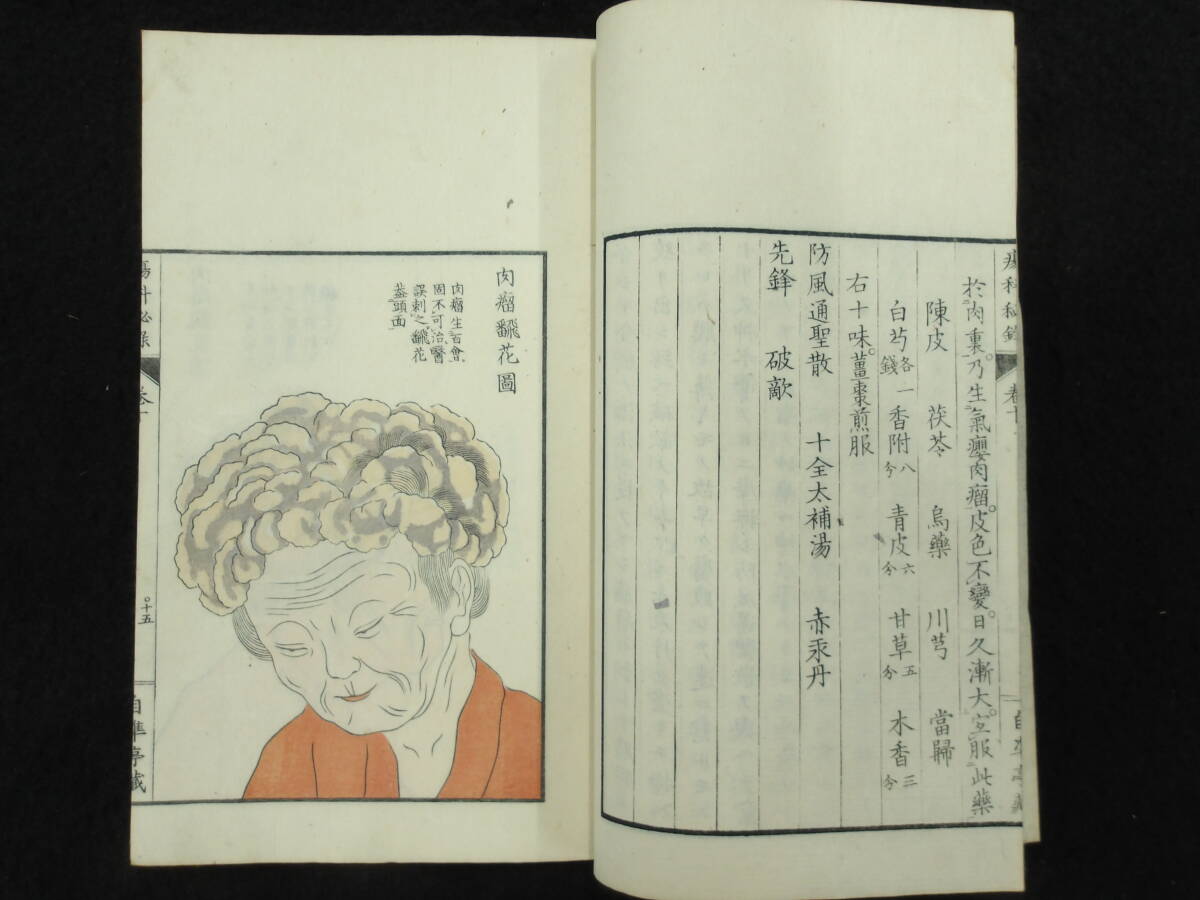 於肉裏。乃生氣癭肉瘤。皮色不變。日久漸大。宜服此藥
陳皮 茯苓 烏藥 川芎 當歸
白芍各一錢 香附八分 青皮六分 甘草五分 木香三分
右十味。薑棗煎服
防風通聖散 十全太補湯 赤汞丹
先鋒 破敵
瘍科秘錄 卷十
自準亭藏
肉瘤飜花圖
肉瘤生百會
固不可治醫
誤刺之飜花
蓋頭面
瘍科秘錄
〇十五
自準亭藏